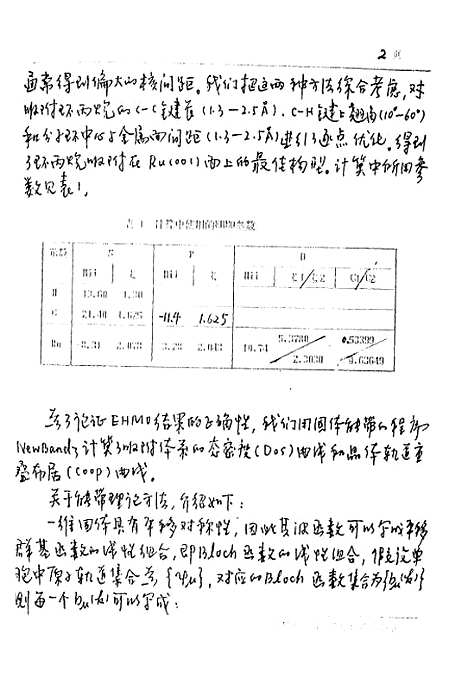 2 页
通常得到偏大的核间距。我们把这两种方法综合考虑,对
吸附环丙烷的C-C键长(1.3-2.5Å)、C-H键上翘角(10°-60°)
和分子环中心与金属面间距(1.3-2.5Å)进行逐点优化。得到
了环丙烷吸附在Ru(001)面上的最佳构型。计算中所用参
数见表1。
表 1 计算中使用的EHMO参数
S P D
Hii ξ Hii ξ Hii C1/C2
H 13.60 1.30
C 21.40 1.625 -11.4 1.625
Ru 2.078 3.28 2.043 5.3780 0.53399
2.3030
为了论证EHMO结果的正确性,我们用固体能带的程序
NewBand3计算了吸附体系的态密度(DOS)曲线和晶体轨道重
叠布居(COOP)曲线。
关于能带理论方法,介绍如下:
一维固体具有平移对称性,因此其波函数可以写成平移
群基函数的线性组合,即Bloch函数的线性组合,假设单
胞中原子轨道集合为{φu},对应的Bloch函数集合为{bu(k)}
则每一个bu(k)可以写成: